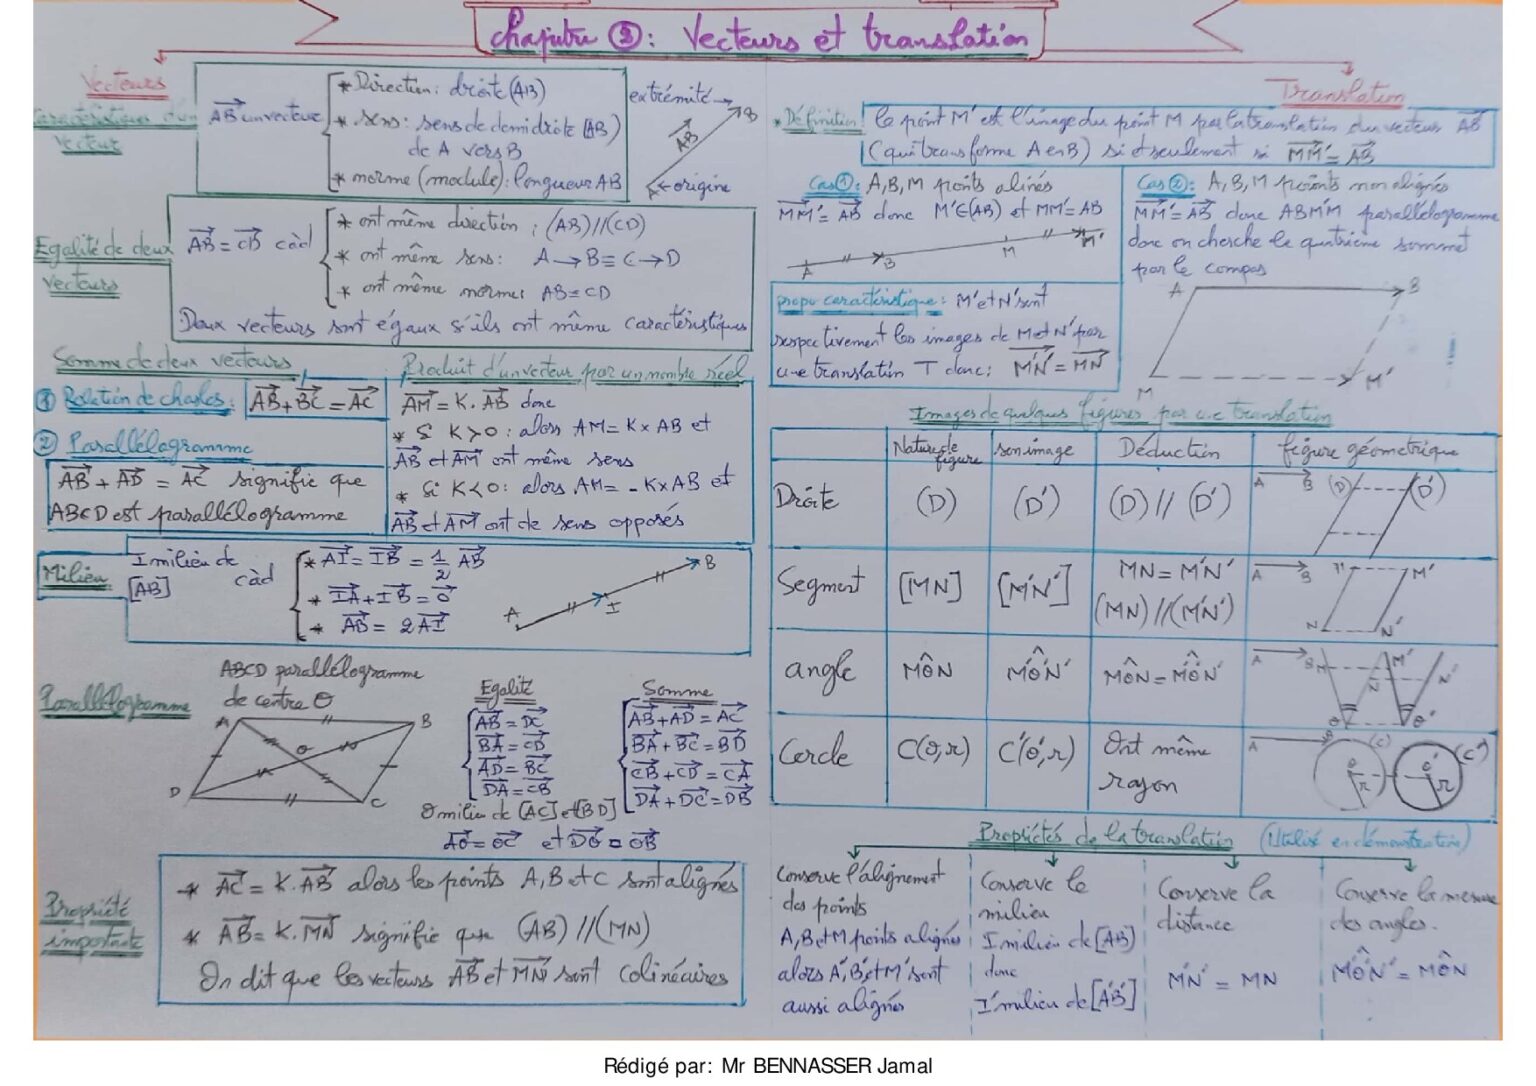 Chapitre ③: Vecteurs et translation
Vecteurs
Caractéristiques d'un
vecteur
AB un vecteur
* Direction: droite (AB)
* sens: sens de demi droite [AB)
de A vers B
* norme (module): longueur AB
extrémité
B
AB
A
origine
Egalité de deux
vecteurs
AB = CD càd
* ont même direction: (AB)//(CD)
* ont même sens: A→B ≡ C→D
* ont même norme: AB=CD
Deux vecteurs sont égaux s'ils ont même caractéristiques
Somme de deux vecteurs
① Relation de chasles:
AB+BC=AC
② Parallélogramme
AB + AD = AC signifie que
ABCD est parallélogramme
Produit d'un vecteur par un nombre réel
AM = K.AB donc
* Si K>0: alors AM=K×AB et
AB et AM ont même sens
* Si K<0: alors AM=-K×AB et
AB et AM ont de sens opposés
Milieu
I milieu de
[AB]
càd
* AI=IB=1/2 AB
* IA+IB=0
* AB=2AI
A
I
B
Parallélogramme
ABCD parallélogramme
de centre O
A
B
O
D
C
Egalité
AB=DC
BA=CD
AD=BC
DA=CB
Somme
AB+AD=AC
BA+BC=BD
CB+CD=CA
DA+DC=DB
O milieu de [AC] et [BD]
AO=OC et DO=OB
Propriété
importante
* AC=K.AB alors les points A,B et C sont alignés
* AB=K.MN signifie que (AB)//(MN)
On dit que les vecteurs AB et MN sont colinéaires
Translation
* Définition
le point M' est l'image du point M par la translation du vecteur AB
(qui transforme A en B) si et seulement si MM'=AB
Cas①: A,B,M points alinés
MM'=AB donc M'∈(AB) et MM'=AB
A
B
M
M'
Cas②: A,B,M points non alignés
MM'=AB donc ABM'M parallélogramme
donc on cherche le quatrième sommet
par le compas
A
B
M
M'
propo caractéristique: M' et N' sont
respectivement les images de M et N par
une translation T donc: M'N'=MN
Images de quelques figures par une translation
Nature de
figure
son image
Déduction
figure géometrique
Droite
(D)
(D')
(D)//(D')
A B (D) (D')
Segment
[MN]
[M'N']
MN=M'N'
(MN)//(M'N')
A B M M'
N N'
angle
MÔN
M'Ô'N'
MÔN=M'Ô'N'
A B M M'
N N'
O O'
Cercle
C(O,r)
C'(O',r)
Ont même
rayon
A B (C) (C')
O O'
r r
Propriétés de la translation (Utilisé en démonstration)
Conserve l'alignement
des points
A,B et M points alignés
alors A',B' et M' sont
aussi alignés
Conserve le
milieu
I milieu de [AB]
donc
I' milieu de [A'B']
Conserve la
distance
M'N' = MN
Conserve la mesure
des angles.
M'Ô'N' = MÔN
Rédigé par: Mr BENNASSER Jamal